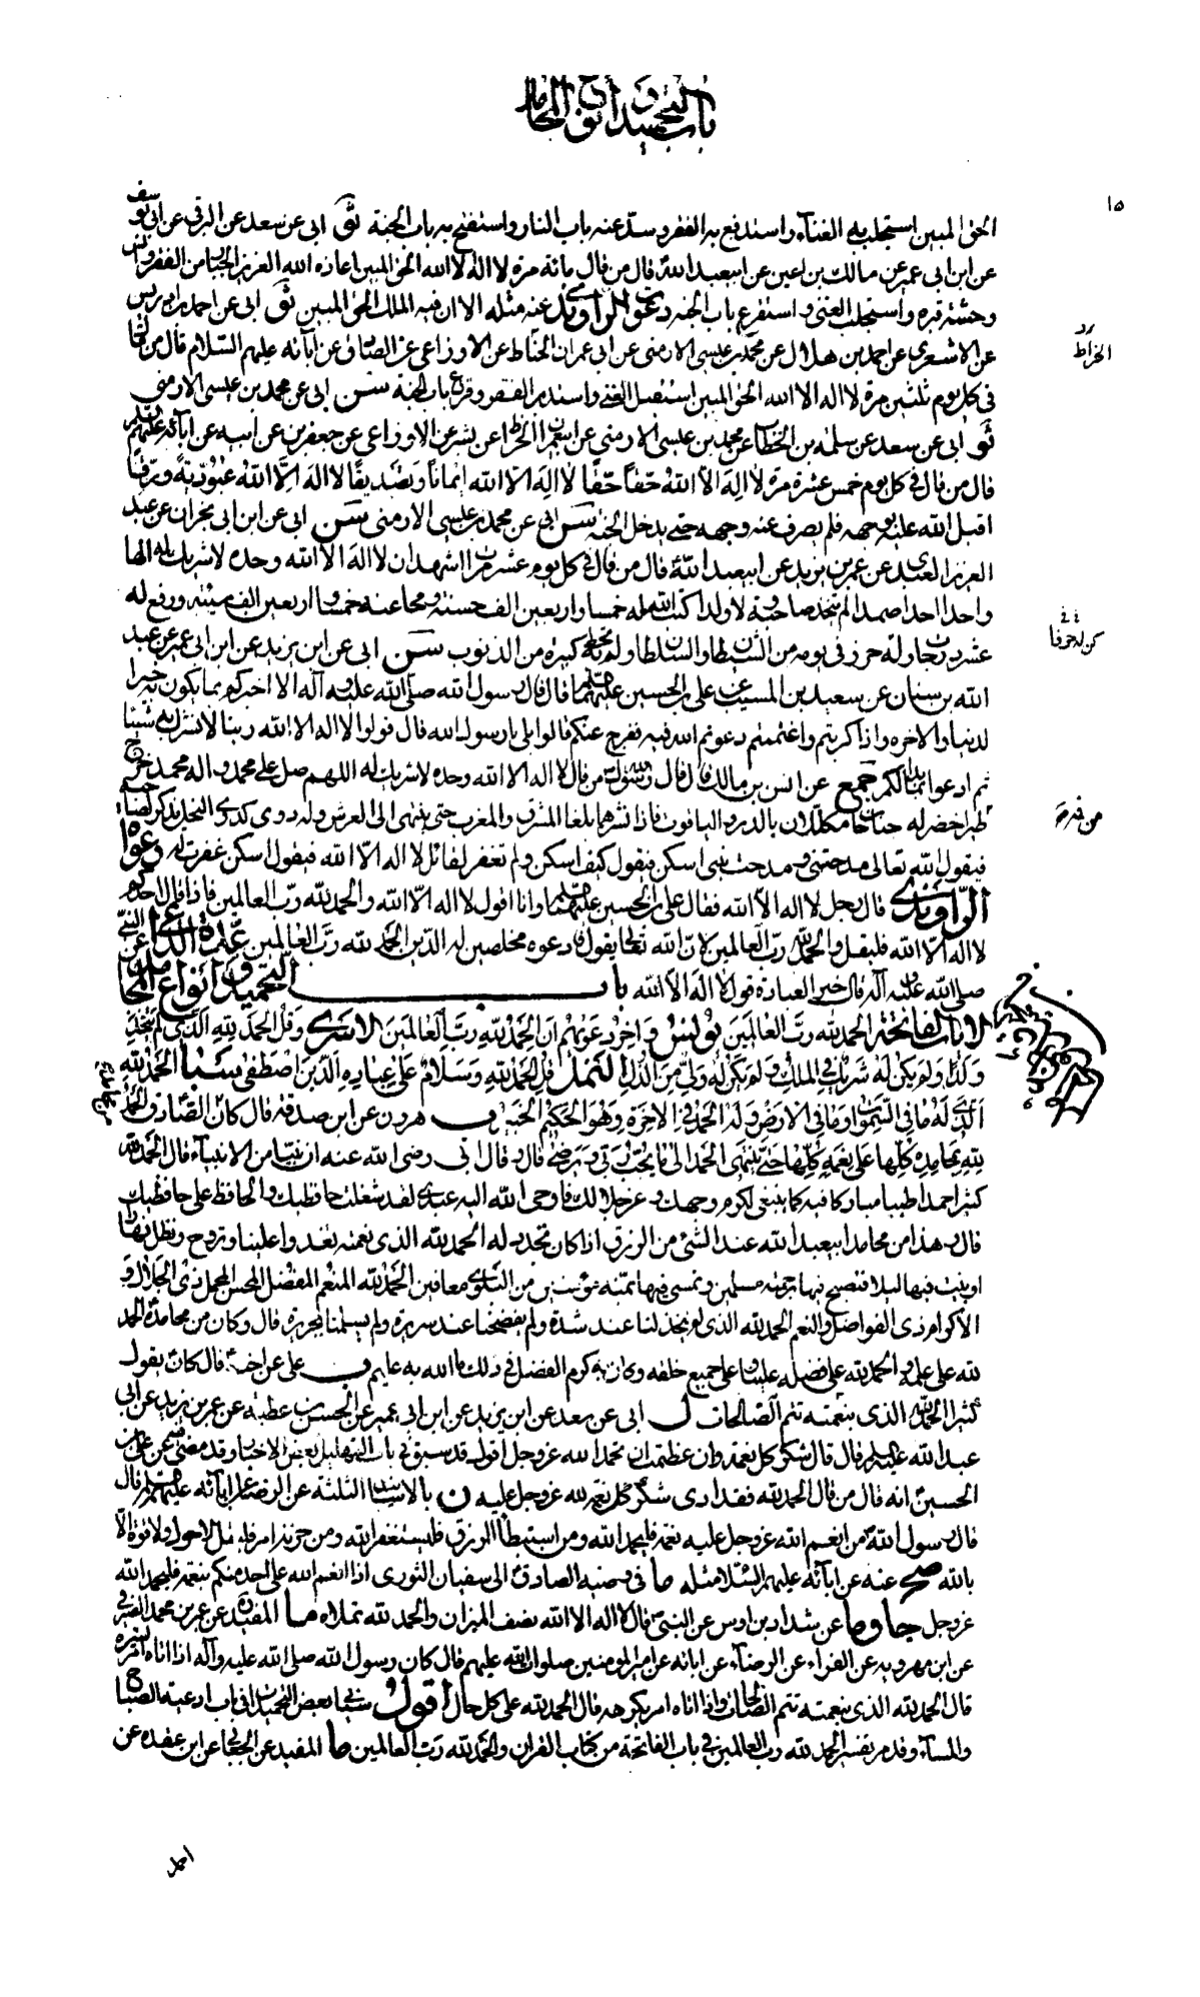 باب التحميد وأنواع المحامد
١٥
الحق المبين استجلب به الغناء واستدفع به الفقر وسد عنه باب النار واستفتح به باب الجنة ثو ابى عن سعد عن البرقى عن ابى يوسف
عن ابن ابى عمير عن مالك بن اعين عن ابيعبد الله قال من قال مائة مرة لا اله الا الله الحق المبين اعاذه الله العزيز الجبار من الفقر وانس
وحشة قبره واستجلب الغنى واستقرع باب الجنه دعوات الراوندى عنه مثله الا ان فيه الملك الحق المبين ثو ابى عن احمد بن ادريس
عن الاشعرى عن احمد بن هلال عن محمد بن عيسى الارمنى عن ابى عمران الحناط عن الاوزاعى عن الصادق عن آبائه عليهم السلام قال من قال
الخراط
فى كل يوم ثلثين مرة لا اله الا الله الحق المبين استقبل الغنى واستدبر الفقر وقرع باب الجنة سن ابى عن محمد بن عيسى الارمنى
ثو ابى عن سعد عن سلمة بن الخطاب عن محمد بن عيسى الارمنى عن ابى عمران الخراط عن بشر عن الاوزاعى عن جعفر بن عن ابيه عن آبائه عليهم السلام
قال من قال فى كل يوم خمس عشرة مرة لا اله الا الله حقا حقا لا اله الا الله ايمانا وتصديقا لا اله الا الله عبودية ورقا
اقبل الله عليه بوجهه فلم يصرف عنه وجهه حتى يدخل الجنة سن ابى عن محمد بن عيسى الارمنى سن ابى عن ابن ابى نجران عن عبد
العزيز العبدى عن عمر بن يزيد عن ابيعبد الله قال من قال فى كل يوم عشر مرات اشهد ان لا اله الا الله وحده لا شريك له الها
واحدا احدا صمدا لم يتخذ صاحبة ولا ولدا كتب الله له خمسا واربعين الف حسنة ومحا عنه خمسا واربعين الف سيئة ورفع له
عشر درجات وكن له حرزا فى يومه من الشيطان والسلطان ولم تحط به كبيرة من الذنوب سن ابى عن ابن يزيد عن ابن ابى عمير عن عبد
الله بن سنان عن سعيد بن المسيب عن على بن الحسين عليهما السلام قال قال رسول الله صلى الله عليه وآله الا اخبركم بما يكون به خيرا
لدنيا والآخره واذا كربتم واغتممتم دعوتم الله فيه ففرج عنكم قالوا بلى يا رسول الله قال قولوا لا اله الا الله ربنا لا نشرك به شيئا
ثم ادعوا بما بدا لكم جمع عن انس بن مالك قال قال رسول الله من قال لا اله الا الله وحده لا شريك له اللهم صل على محمد وآله محمد خرج
من فيه
طير اخضر له جناحان مكللان بالدر والياقوت فاذا نشرهما بلغا المشرق والمغرب حتى ينتهى الى العرش وله دوى كدوى النحل يذكر لصاحبه
فيقول الله تعالى مدحتنى ومدحت نبيى اسكن فيقول كيف اسكن ولم تغفر لقائل لا اله الا الله فيقول اسكن غفرت له دعوات
الراوندى قال رجل لا اله الا الله فقال على بن الحسين عليهما السلام وانا اقول لا اله الا الله والحمد لله رب العالمين فاذا قال احدكم
لا اله الا الله فليقل والحمد لله رب العالمين لان الله تعالى يقول فادعوه مخلصين له الدين الحمد لله رب العالمين عدة الداعى عن النبى
صلى الله عليه وآله قال خير العبادة قول لا اله الا الله باب التحميد وانواع المحامد
الآيات الفاتحة الحمد لله رب العالمين يونس وآخر دعويهم ان الحمد لله رب العالمين الاسرى وقل الحمد لله الذى لم يتخذ
ولدا ولم يكن له شريك فى الملك ولم يكن له ولى من الذل النمل قل الحمد لله وسلام على عباده الذين اصطفى سبا الحمد لله
الذى له ما فى السموات وما فى الارض وله الحمد فى الآخرة وهو الحكيم الخبير ب هرون عن ابن صدقة قال كان الصادق الحمد
لله بمحامده كلها على نعمه كلها حتى ينتهى الحمد الى ما يحب ربى ويرضى قال وقال ابى رضى الله عنه ان نبيا من الانبياء قال الحمد لله
كثيرا حمدا طيبا مباركا فيه كما ينبغى لكرم وجهك وعز جلالك فاوحى الله اليه عبدى لقد شغلت حافظيك والحافظ على حافظيك
قال وهذا من محامد ابيعبد الله عند الشئ من الرزق اذا كان تجدد له الحمد لله الذى نعمته تغدوا علينا وتروح ونظل نهارا
او نبيت فيها ليلا فنصبح فيها برحمته مسلمين ونمسى فيها بمنه مؤمنين من البلوى معافين الحمد لله المنعم المفضل المحسن المجمل ذى الجلال و
الاكرام ذى الفواضل والنعم الحمد لله الذى لم يخذلنا عند شدة ولم يفضحنا عند سريرة ولم يسلمنا بجريرة قال وكان من محامده الحمد
لله على علمه والحمد لله على فضله علينا وعلى جميع خلقه وكان به كرم الفضل فى ذلك ما الله به عليم ب على عن اخيه قال كان يقول
كثيرا الحمد لله الذى بنعمته تتم الصالحات ل ابى عن سعد عن ابن يزيد عن ابن ابى عمير عن الحسن بن عطية عن عمر بن يزيد عن ابى
عبد الله عليه السلام قال قال شكر كل نعمة وان عظمت ان تحمد الله عز وجل اقول قد سبق فى باب التهليل بعض الاخبار وقد مضى عن على بن
الحسين انه قال من قال الحمد لله فقد ادى شكر كل نعم لله عز وجل عليه ن بالاسانيد الثلثة عن الرضا عن آبائه عليهم السلام قال
قال رسول الله من انعم الله عز وجل عليه نعمة فليحمد الله ومن استبطأ الرزق فليستغفر الله ومن حزنه امر فليقل لا حول ولا قوة الا
بالله صح عنه عن آبائه عليهم السلام مثله ما فى وصية الصادق الى سفيان الثورى اذا انعم الله على احد منكم بنعمة فليحمد الله
عز وجل جا وما عن شداد بن اوس عن النبى قال لا اله الا الله نصف الميزان والحمد لله تملاه ما المفيد عن عمر بن محمد الصيرفى
عن ابن مهرويه عن الفراء عن الرضا عن آبائه عن امير المومنين صلوات الله عليهم قال كان رسول الله صلى الله عليه وآله اذا اتاه امر يسره
قال الحمد لله الذى بنعمته تتم الصالحات واذا اتاه امر يكرهه قال الحمد لله على كل حال اقول سياتى بعض التحميدات فى باب ادعية الصباح
والمساء وقد مر تفسير الحمد لله رب العالمين فى باب الفاتحة من كتاب القرآن والحمد لله رب العالمين ما المفيد عن الجعابى عن ابن عقده عن
احمد